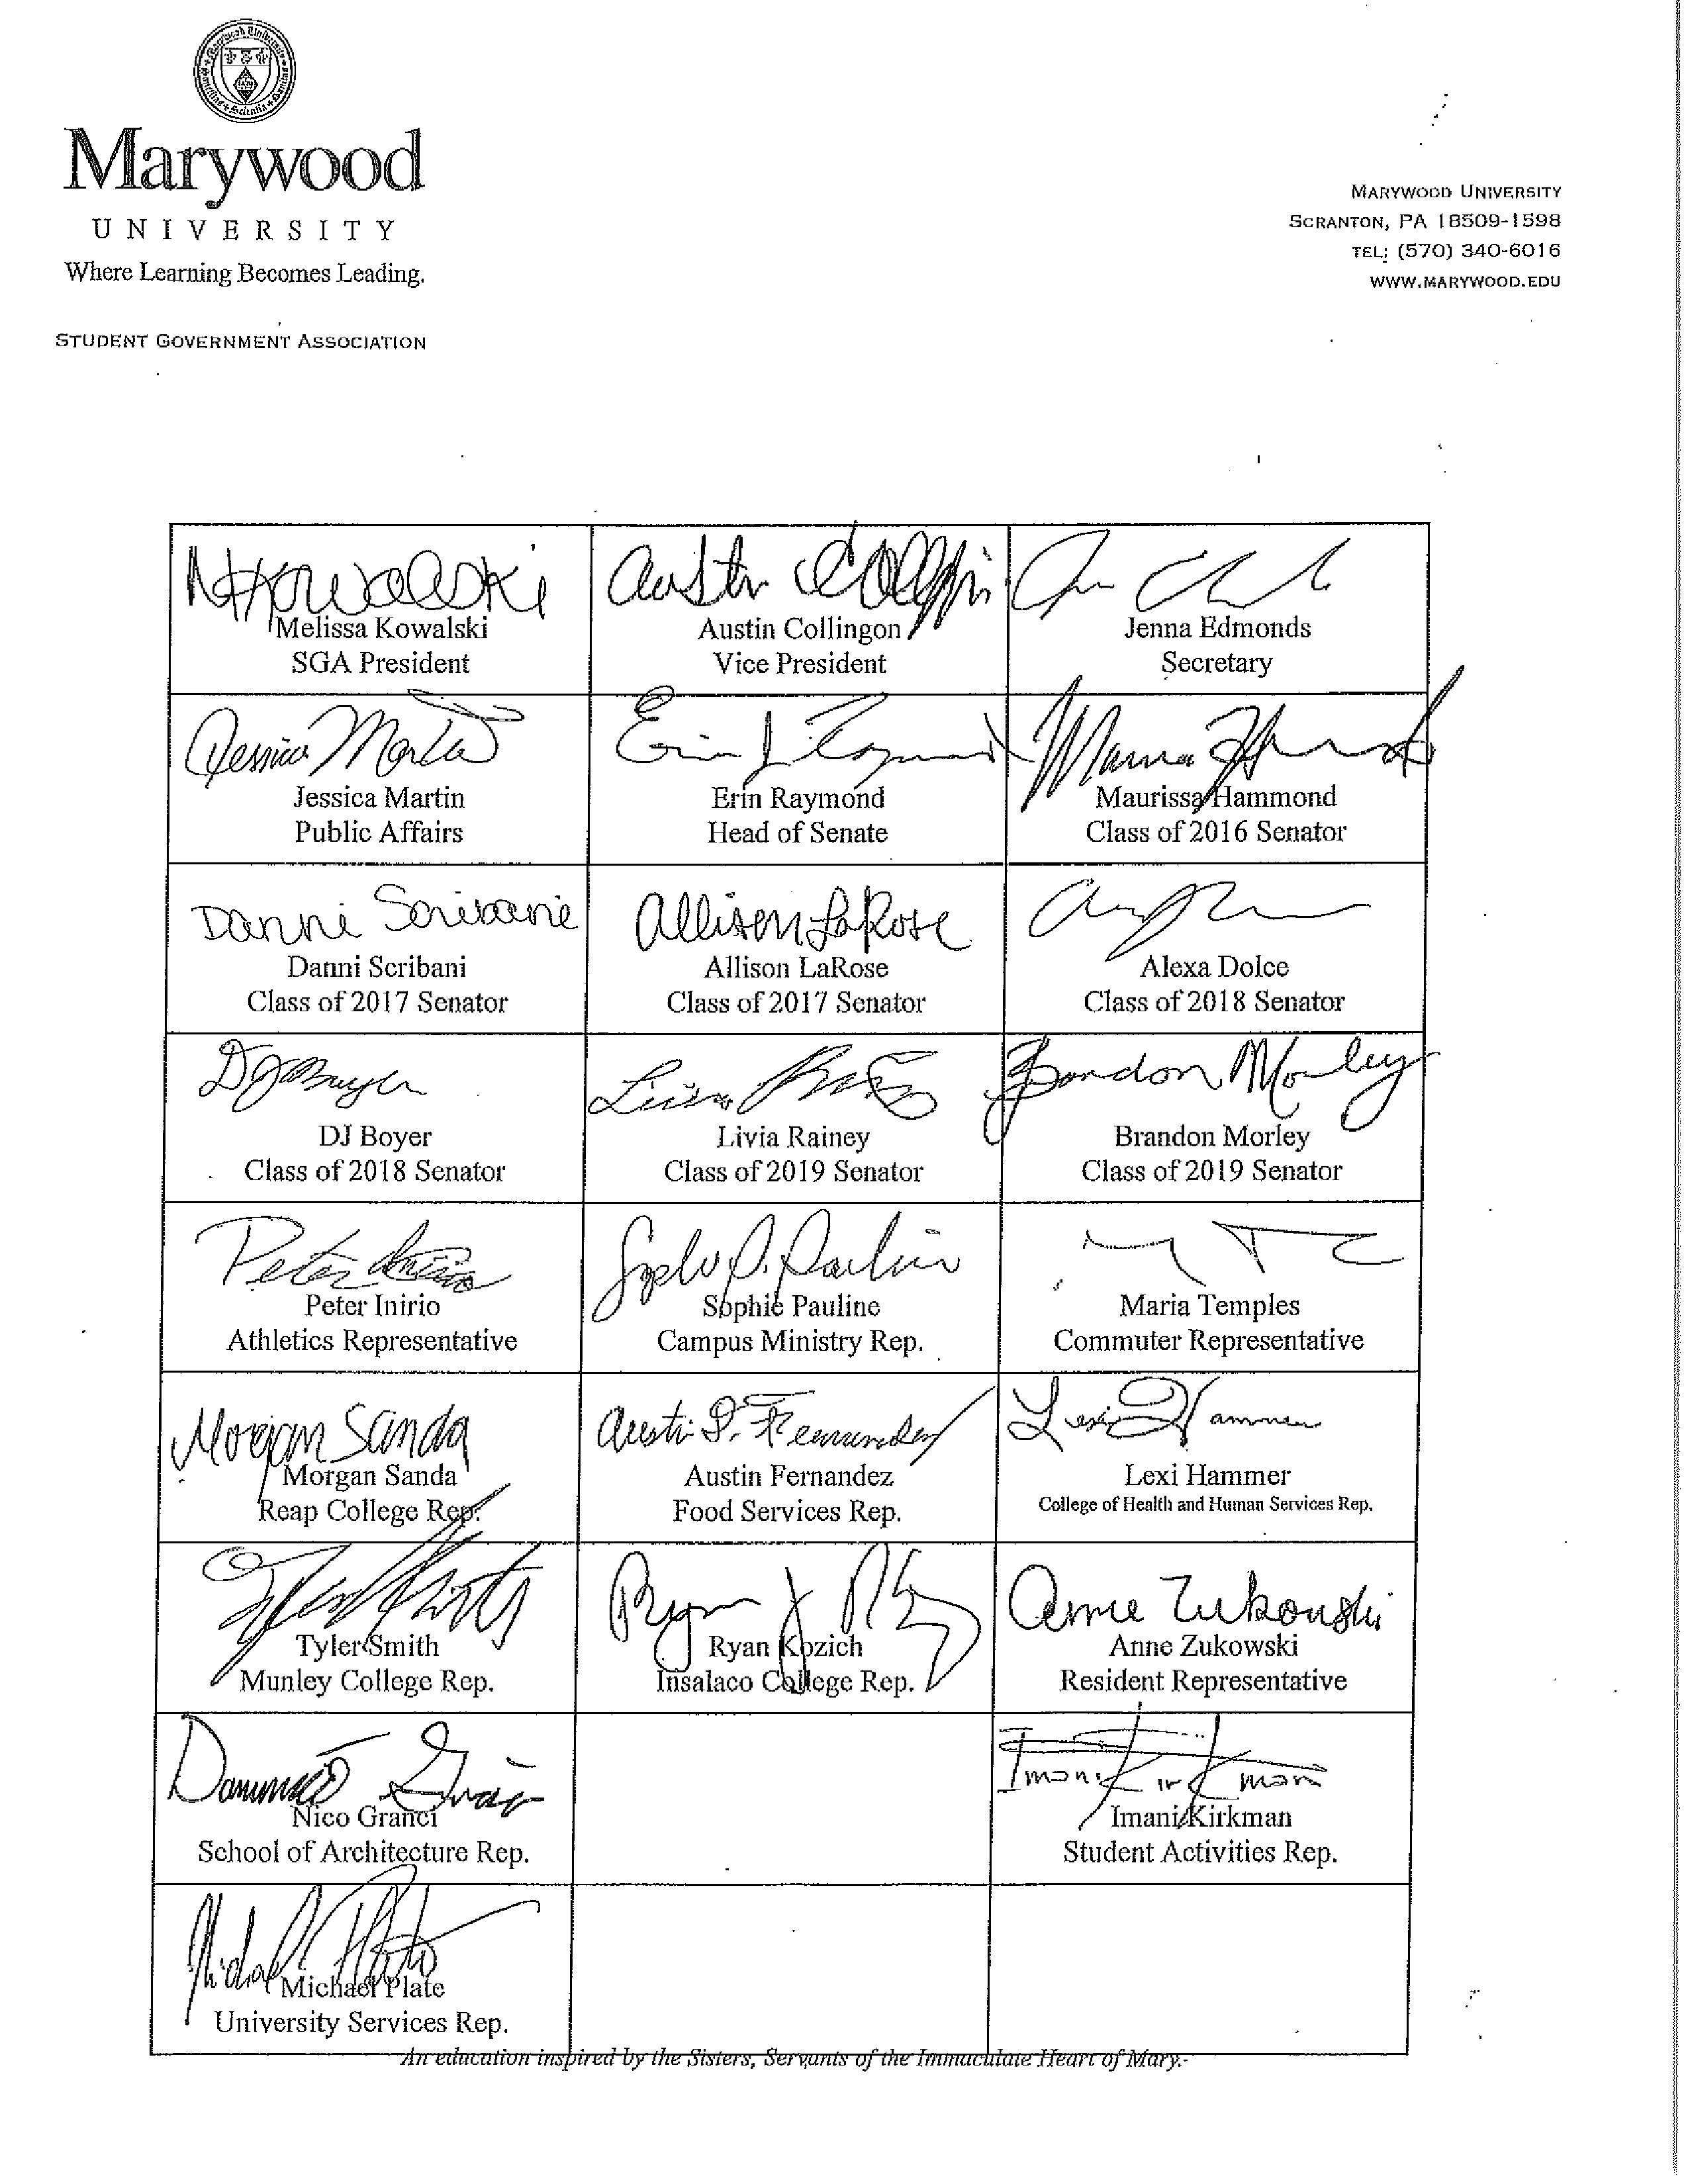 Marywood
UNIVERSITY
Where Learning Becomes Leading.
STUDENT GOVERNMENT ASSOCIATION
MARYWOOD UNIVERSITY
SCRANTON, PA 18509-1598
TEL: (570) 340-6016
WWW.MARYWOOD.EDU
MKowalski
Melissa Kowalski
SGA President
Austin Collingon
Vice President
Jenna Edmonds
Secretary
Jessica Martin
Jessica Martin
Public Affairs
Erin Raymond
Head of Senate
Maurissa Hammond
Class of 2016 Senator
Danni Scribani
Danni Scribani
Class of 2017 Senator
Allison LaRose
Allison LaRose
Class of 2017 Senator
Alexa Dolce
Class of 2018 Senator
DJ Boyer
DJ Boyer
Class of 2018 Senator
Livia Rainey
Class of 2019 Senator
Brandon Morley
Brandon Morley
Class of 2019 Senator
Peter Inirio
Peter Inirio
Athletics Representative
Sophie Pauline
Campus Ministry Rep.
Maria Temples
Commuter Representative
Morgan Sanda
Morgan Sanda
Reap College Rep.
Austin D. Fernandez
Austin Fernandez
Food Services Rep.
Lexi Hammer
Lexi Hammer
College of Health and Human Services Rep.
Tyler Smith
Munley College Rep.
Ryan Kozich
Insalaco College Rep.
Anne Zukowski
Anne Zukowski
Resident Representative
Nico Granci
School of Architecture Rep.
Imani Kirkman
Imani Kirkman
Student Activities Rep.
Michael Plate
Michael Plate
University Services Rep.
An education inspired by the Sisters, Servants of the Immaculate Heart of Mary.